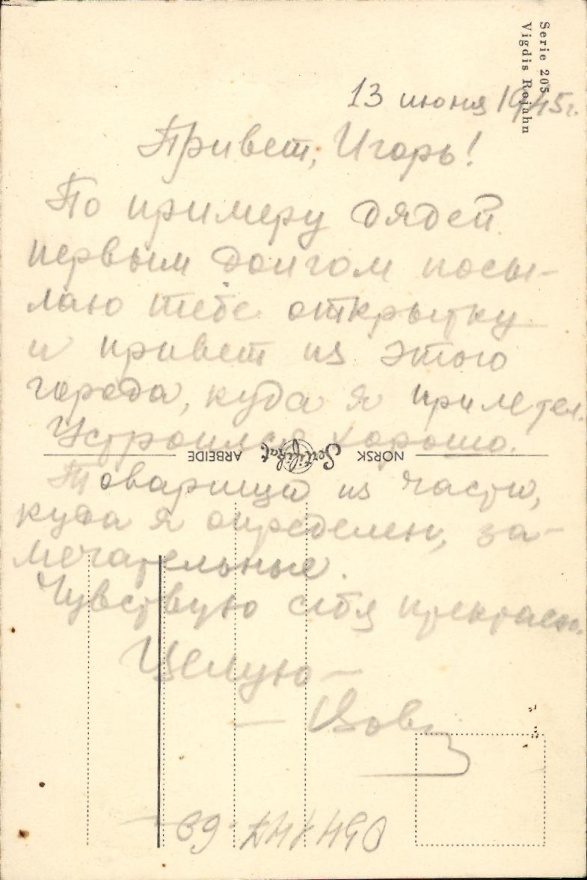 Serie 205
Vigdis Rojahn
13 июня 1945г.
Привет, Игорь!
По примеру дядей
первым долгом посы-
лаю тебе открытку
и привет из этого
города, куда я прилетел.
Устроился хорошо.
NORSK Serifikat. ARBEIDE
Товарищи из части,
куда я определен, за-
мечательные.
Чувствую себя прекрасн
Целую —
— Вова